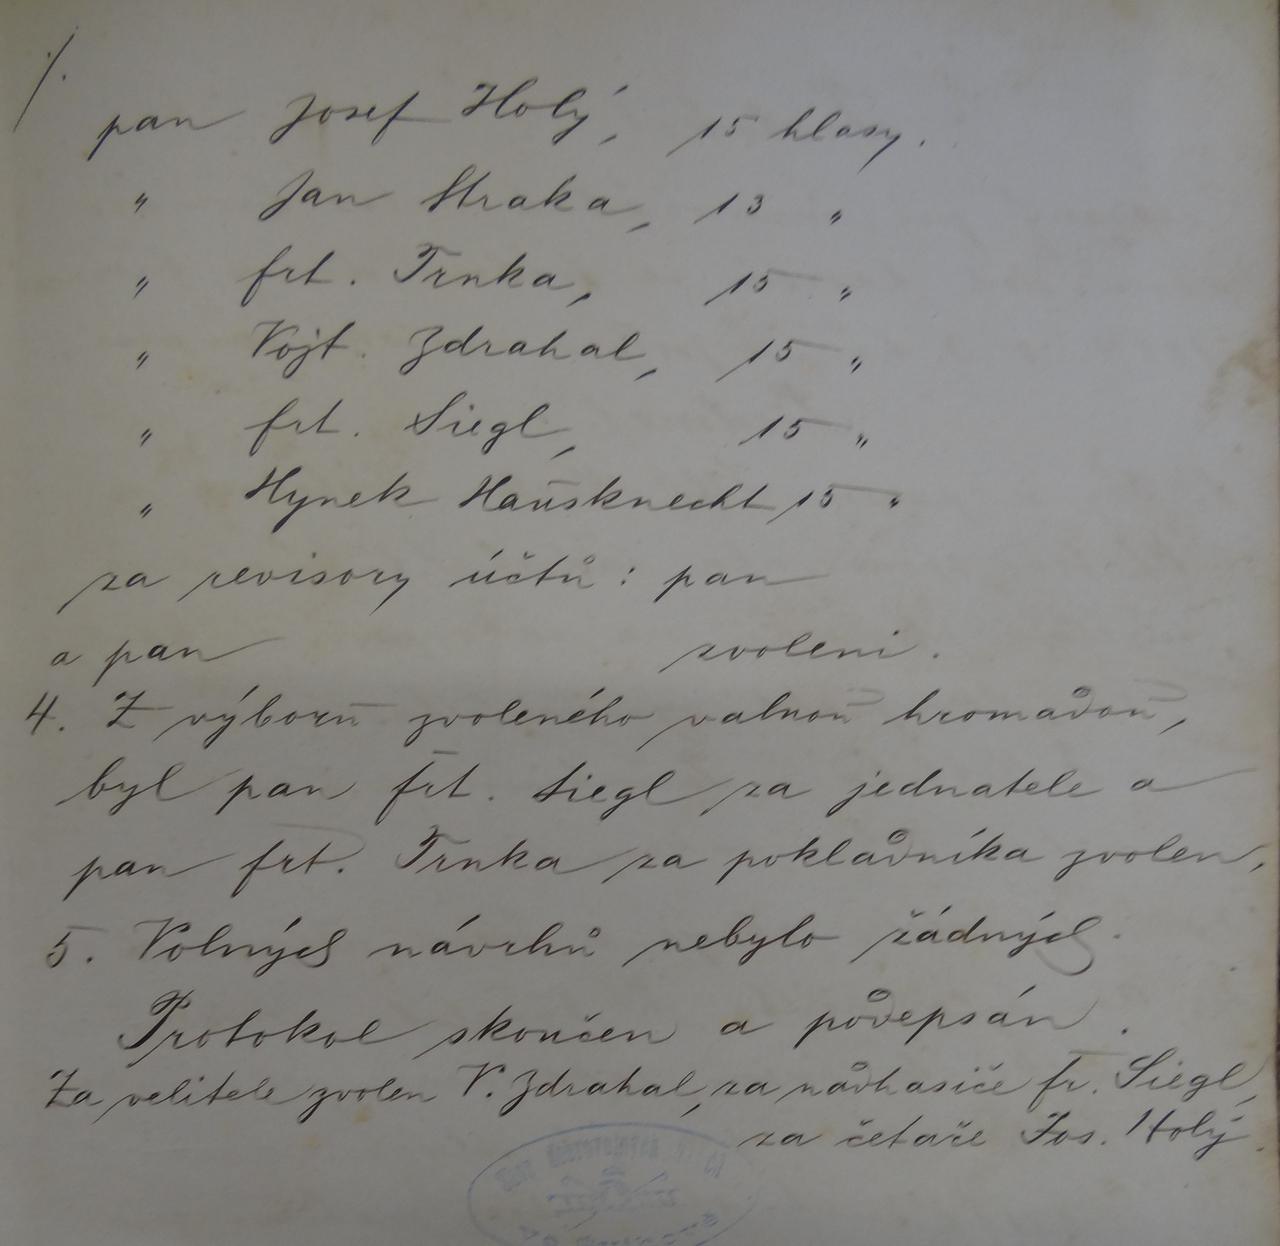 ./.
pan Josef Holý, 15 hlasy.
" Jan Straka, 13 "
" frt. Trnka, 15 "
" Vojt. Zdrahal, 15 "
" frt. Siegl, 15 "
" Hynek Hausknecht 15 "
za revisory účtů: pan
a pan zvoleni.
4. Z výboru zvoleného valnou hromadou,
byl pan frt. Siegl za jednatele a
pan frt. Trnka za pokladníka zvolen,
5. Volných návrhů nebylo žádných.
Protokol skončen a podepsán.
Za velitele zvolen V. Zdrahal, za nadhasiče fr. Siegl,
za četaře Jos. Holý.